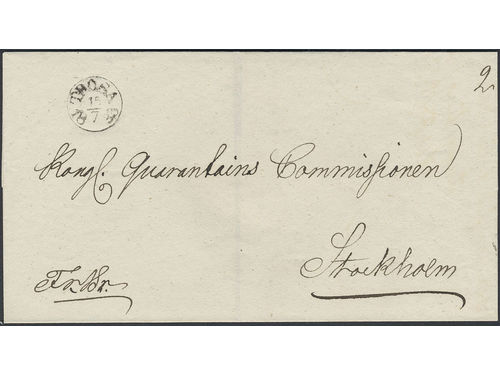 2.
TROSA
15
7
Kongl. Quarantains Commissionen
Stockholm
Fr. Br.